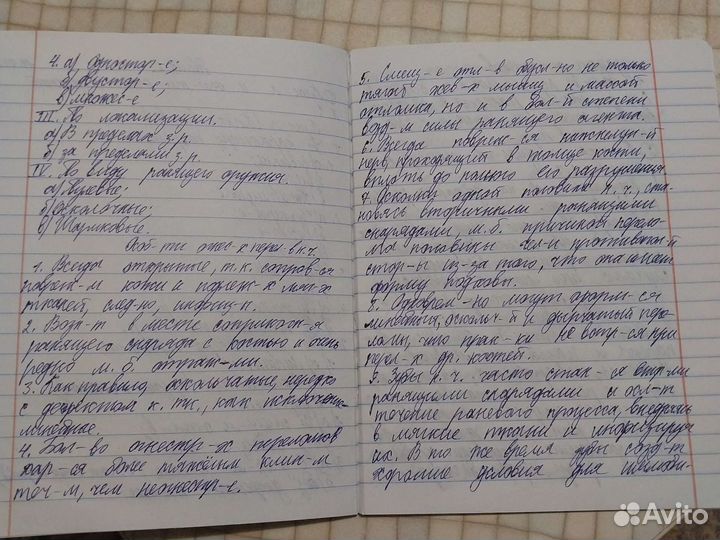 4. а) Одностор-е;
б) двустор-е;
в) множес-е
III. По локализации.
а) В пределах з.р.
б) за пределами з.р.
IV. По виду ранящего оружия.
а) Пулевые;
б) Осколочные;
в) Шариковые.
Осо́б-ти огнес-х перел-в н.ч.
1. Всегда открытые, т.к. сопров-ся
повреж-м кожи и поврежд-х мяг-х
тканей, след-но, инфиц-ы.
2. Возн-т в месте соприкосн-я
ранящего снаряда с костью и очень
редко м.б. отраж-ми.
3. Как правило, оскольчатые, нередко
с дефектом к. тк., как исключение
линейные.
4. Бол-во огнестр-х переломов
хар-ся более тяжёлым клин-м
теч-м, чем неогнестр-е.
5. Смещ-е отл-в обусл-но не только
тягой жев-х мышц и массой
отломка, но и в бол-й степени
возд-м силы ранящего агента.
6. Всегда поврежд-ся нижнелун-й
нерв, проходящий в толще кости,
вплоть до полного его разрушения
7. Осколки одной половины н.ч., ста-
новясь вторичными ранящими
снарядами, м.б. причиной перело-
ма половины чел-и противопол-й
стор-ы из-за того, что она имеет
форму подковы.
8. Одноврем-но могут форм-ся
линейный, оскольч-й и дырчатый пере-
ломы, что прак-ки не встр-ся при
перел-х др. костей.
9. Зубы н.ч. часто стан-ся втор-ми
ранящими снарядами и осл-т
течение раневого процесса, внедряясь
в мягкие ткани и инфицируя
их. В то же время зубы созд-т
хорошие условия для иммоби-
Avito